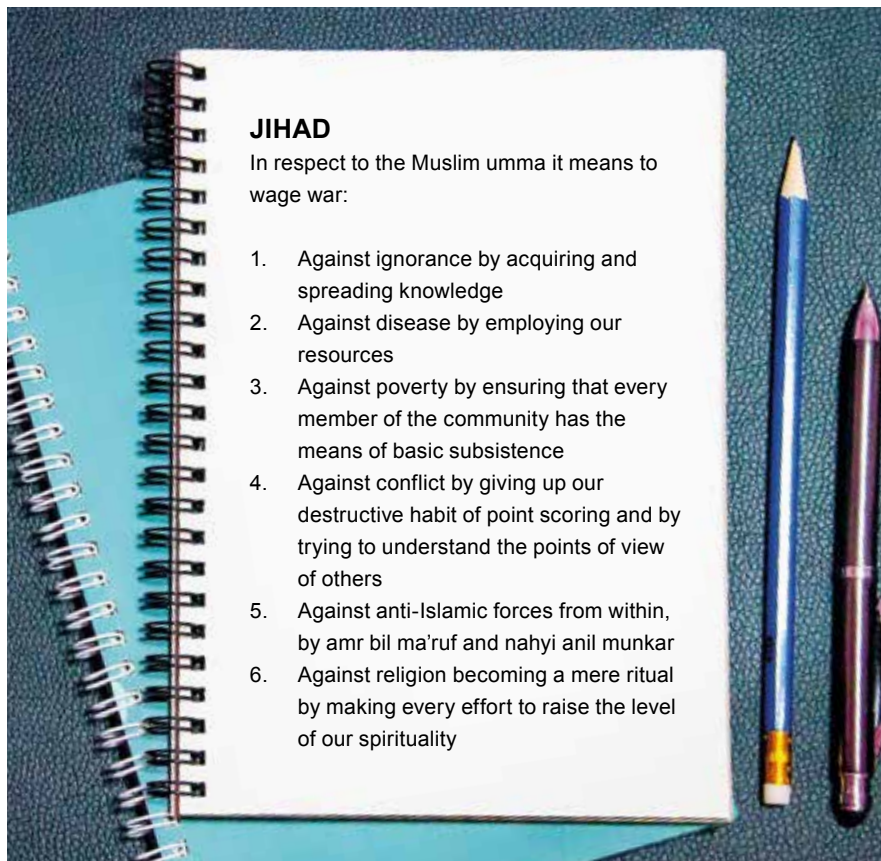 JIHAD
In respect to the Muslim umma it means to
wage war:
1. Against ignorance by acquiring and
spreading knowledge
2. Against disease by employing our
resources
3. Against poverty by ensuring that every
member of the community has the
means of basic subsistence
4. Against conflict by giving up our
destructive habit of point scoring and by
trying to understand the points of view
of others
5. Against anti-Islamic forces from within,
by amr bil ma’ruf and nahyi anil munkar
6. Against religion becoming a mere ritual
by making every effort to raise the level
of our spirituality